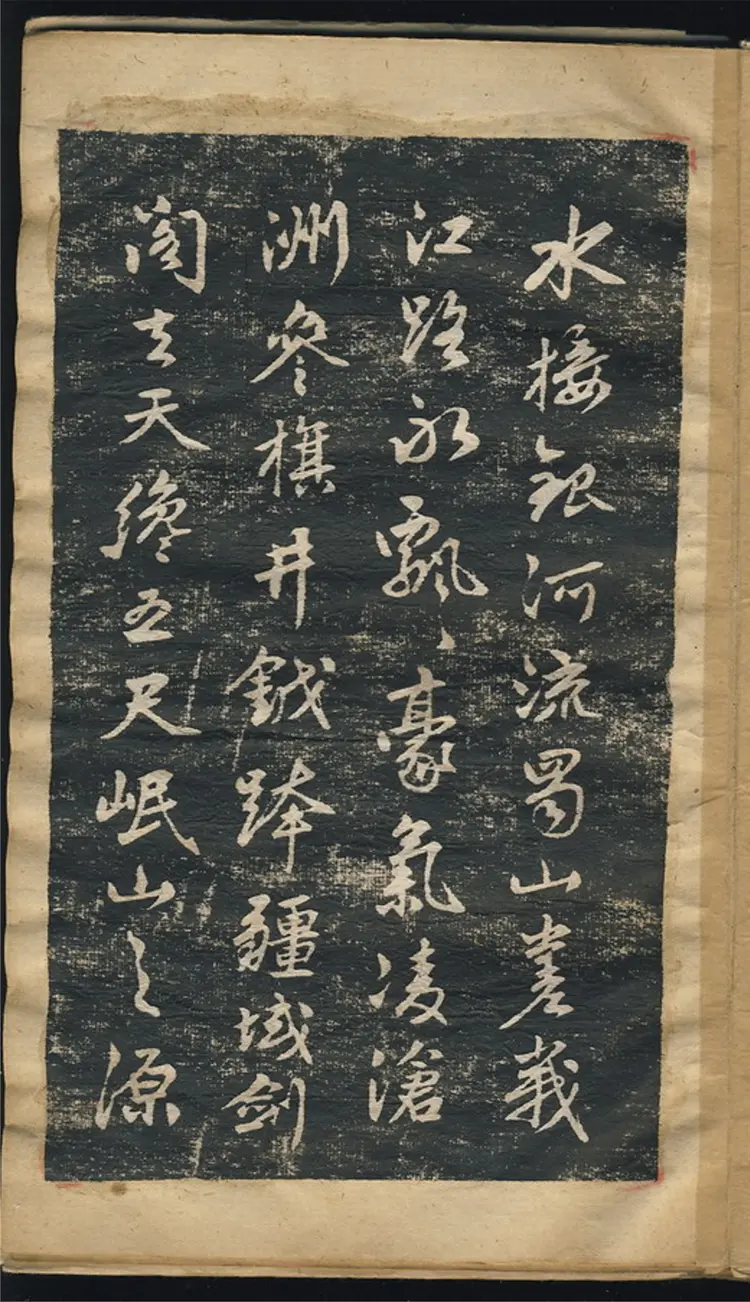 水接銀河流蜀山嵳峩
江路永飄〻豪氣凌滄
洲參旗井鉞跨疆域劍
閣去天纔五尺岷山之源